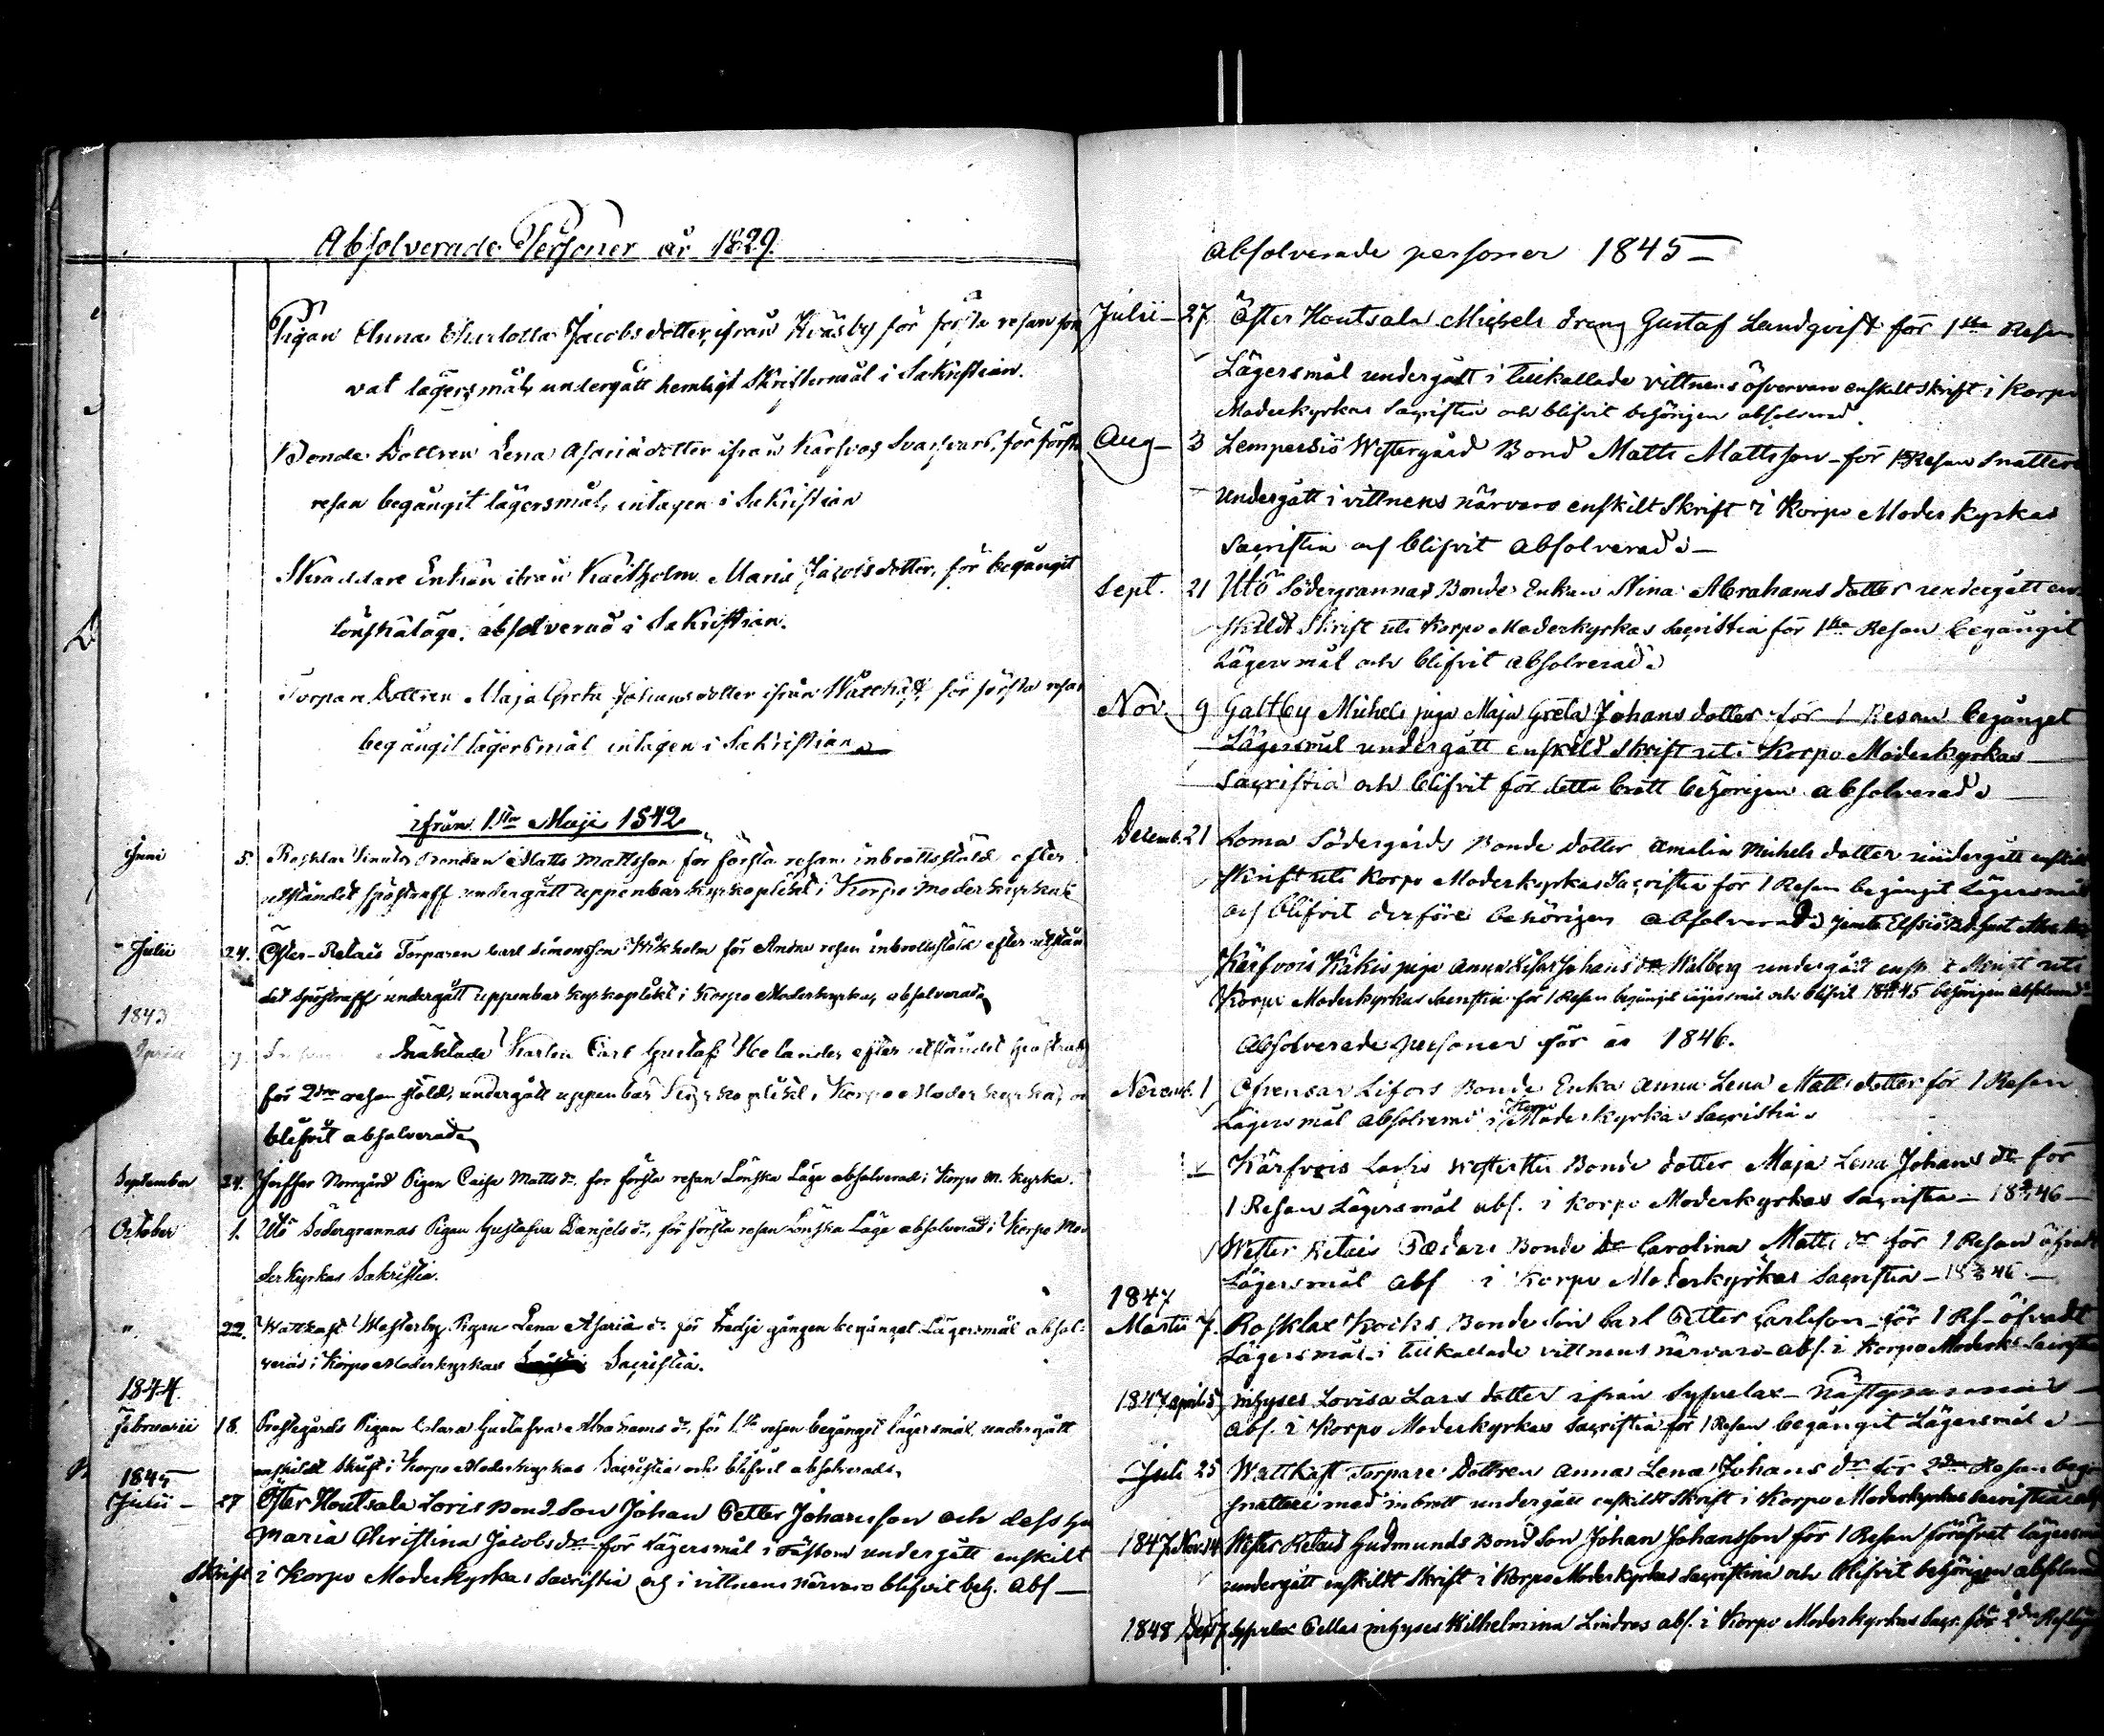 Absolverade Personer år 1829.
Pigan Anna Charlotta Jacobsdotter, ifrån Kräsby för första resan föröf
vat lägersmål, undergått hemligt Skriftermål i Sakristian.
Bonde Dottren Lena Asariædotter ifrån Karfvos för första
resan begångit lägersmål, intagen i Sakristian
Skraddare Enkan ifrån Maria Jacobsdotter, för begångit
lönskaläge, absolverad i Sakristian.
Torpare Dottren Maja Greta Johansdotter ifrån Wattkast för första resan
begångit lägersmål intagen i Sakristian
ifrån 1sta Maji 1842
Juni 5. Rosklax Bonden Matts Mattsson för första resan inbrottsstöld efter
utståndet spöstraff undergått uppenbar kyrkoplikt i Korpo Moder kyrka
Julii 24. Öster-Retais Torparen Carl Simonsson Wikholm för Andra resan inbrottsstöld efter utstån
det spöstraff undergått uppenbar kyrkoplikt i Korpo Moderkyrka, absolverad
1843
April 9. Karlen Carl Gustaf Helander efter utståndet spöstraff
för 2dra resan stöld, undergått uppenbar Kyrkoplikt i Korpo Moder kyrka, och
blifvit absolverad
September 24. Norrgård Pigan Caisa Matts dr. för första resan Lönska Läge absolverad i Korpo M. kyrka.
October 1. Utö Södergrannas Pigan Gustafva Danjels dr, för första resan Lönska Läge absolverad i Korpo Mo
derkyrkas Sakristia.
" 22. Wattkast Westerby Pigan Lena Asariæ dr för tredje gången begånget Lägersmål absol-
verad i Korpo Moderkyrkas Sacristia.
1844
Februarii 18. Prestegårds Pigan Clara Gustafva Abrahams dr, för 1sta resan begånget lägersmål undergått
enskildt Skrift i Korpo Moderkyrkas Sacristia och blifvit absolverad
1845
Julii 27 Öster Houtsala Loris Bond Son Johan Petter Johansson och dess
Maria Christina Jacobs dr för Lägersmål undergått enskilt
Skrift i Korpo Moderkyrkas Sacristia och i vittnens närvaro blifvit beh. Abs
Absolverade personer 1845
Julii 27 Öster Houtsala Michels dräng Gustaf Lundqvist för 1sta Resan
Lägersmål undergått i tillkallade vittnens öfvervaro enskilt skrift i Korpo
Moderkyrkas Sacristia och blifvit behörigen absolverad.
Aug 3 Lempersiö Westergård Bond Matts Mattsson för 1 Resan Snatteri
Undergått i vittnens närvaro enskilt Skrift i Korpo Moder kyrkas
Sacristia och blifvit Absolverad
Sept. 21 Utö Södergrannas Bonde Enkan Stina Abrahams dotter undergått en
skildt Skrift uti Korpo Moderkyrkas Sacristia för 1sta Resan Begångit
Lägersmål och blifvit absolverad
Nov. 9 Galtby Michels piga Maja Greta Johans dotter för 1 Resan begånget
Lägersmål undergått enskild Skrift uti Korpo Moderkyrkas
Sacristia och blifvit för detta brott behörigen absolverad
Decemb. 21 Loma Södergårds Bonde dotter Amalia Michels dotter undergått enskilt
Skrift uti Korpo Moderkyrkas Sacristia för 1 Resan begångit Lägersmål
och blifvit derföre behörigen absolverad
Kärfvois Käkis piga Anna Lisa Johans dr Walberg undergått ensk. Skrift uti
Korpo Moderkyrkas Sacristia för 1 Resan begånget lägersmål och blifvit behörigen absolverad
Absolverade personer för år 1846.
Novemb. 1 Lifors Bonde Enka Anna Lena Matts dotter för 1 Resan
Lägersmål absolverad i Korpo Moderkyrkas Sacristia
Kärfvois Bonde dotter Maja Lena Johans dr för
1 Resan Lägersmål abs. i Korpo Moderkyrkas Sacristia
Wester Retais Bonde dr Carolina Matts dr för 1 Resan öfvadt
Lägersmål Abs i Korpo Moderkyrkas Sacristia
1847
Martii 7. Rosklax Kocks Bonde Son Carl Petter Carlsson för 1 Rs öfvadt
Lägersmål i tillkallade vittnens närvaro abs. i Korpo Moderk. Sacristia
1847 april 5 inhyses Lovisa Lars dotter ifrån
Abs. i Korpo Moderkyrkas Sacristia för 1 Resan begångit Lägersmål
Juli 25 Wattkast Torpare Dottren Anna Lena Johans dr för 2dra Resan
snatteri med inbrott undergått enskildt skrift i Korpo Moderkyrkas Sacristia
1847 Nov. 14 Wester Retais Gudmunds Bond Son Johan Johansson för 1 Resan föröfvat lägersmål
undergått enskildt Skrift i Korpo Moderkyrkas Sacristia och blifvit behörigen absolverad
1848 Pellas inhyses Wilhelmina Lindroos abs. i Korpo Moderkyrkas Sacr. för 2dra